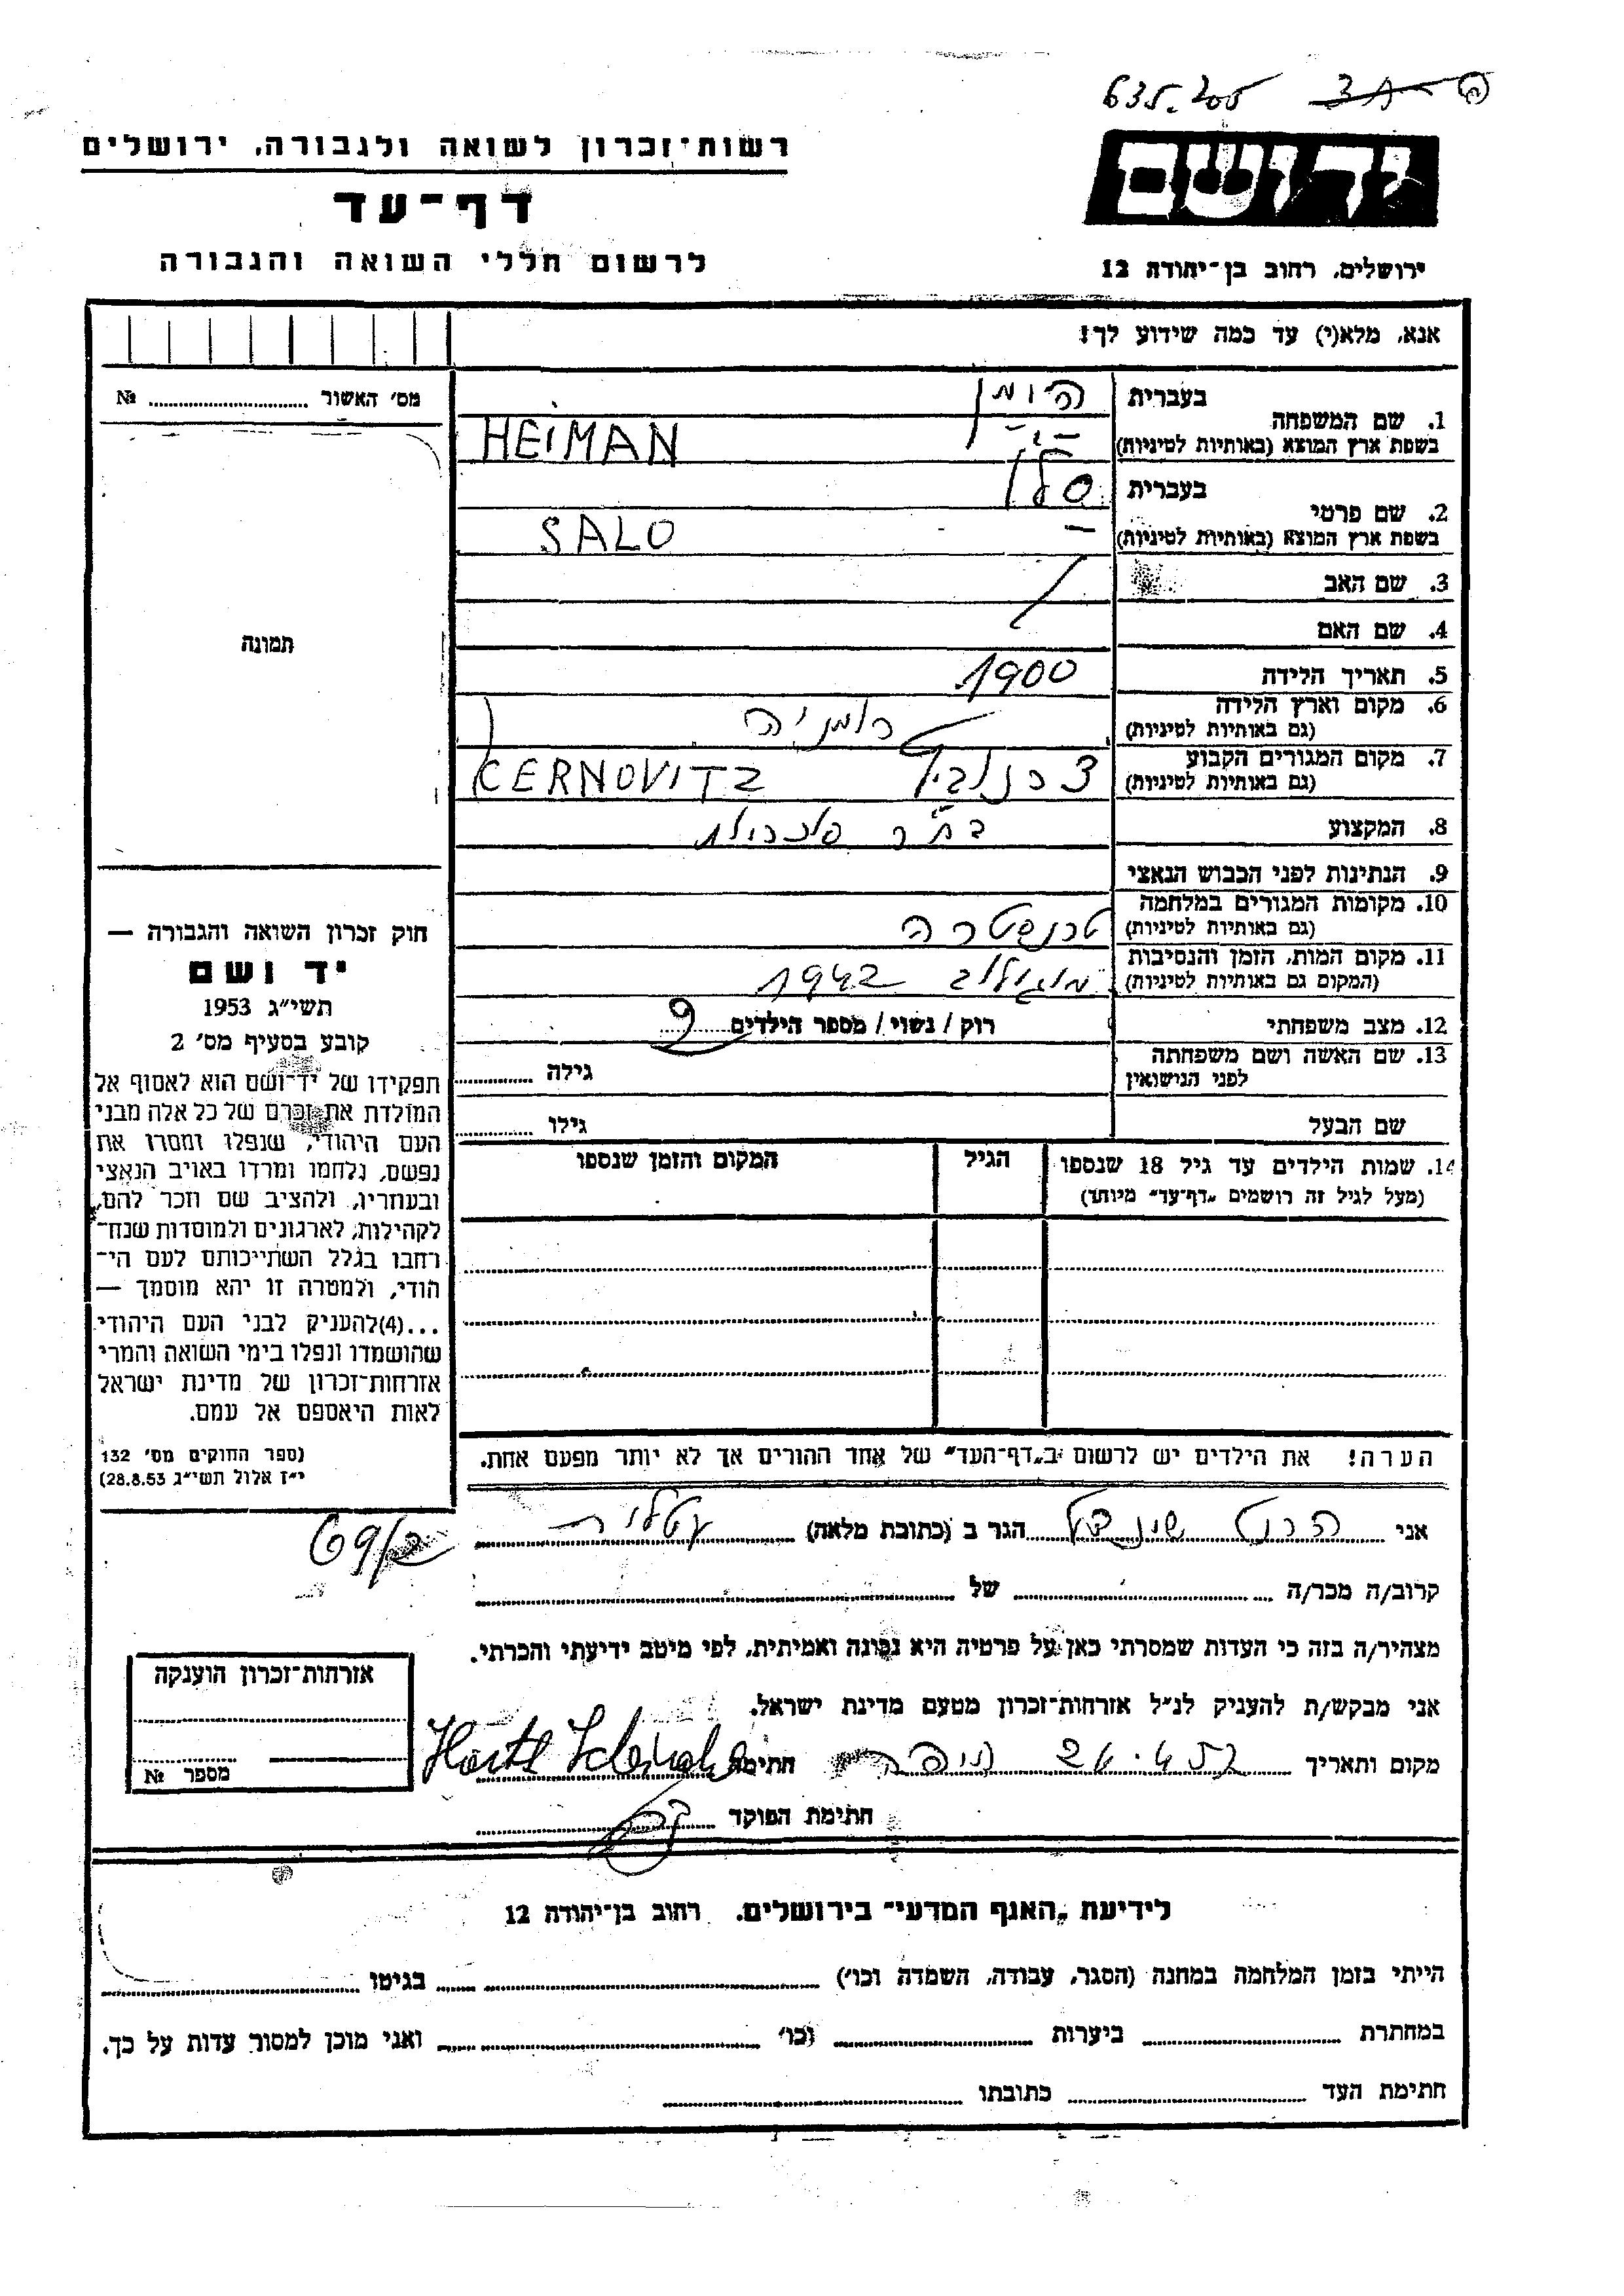 635.205 3A
רשות-זכרון לשואה ולגבורה, ירושלים
יד ושם
דף-עד
לרשום חללי השואה והגבורה
ירושלים, רחוב בן-יהודה 12
אנא, מלא(י) עד כמה שידוע לך!
מס׳ האשור № 
תמונה
חוק זכרון השואה והגבורה —
יד ושם
תשי״ג 1953
קובע בסעיף מס׳ 2
תפקידו של יד-ושם הוא לאסוף אל
המולדת את זכרם של כל אלה מבני
העם היהודי, שנפלו ומסרו את
נפשם, נלחמו ומרדו באויב הנאצי
ובעוזריו, ולהציב שם וזכר להם,
לקהילות, לארגונים ולמוסדות שנח-
רחבו בגלל השתייכותם לעם הי-
הודי, ולמטרה זו יהא מוסמך —
...(4)להעניק לבני העם היהודי
שהושמדו ונפלו בימי השואה והמרי
אזרחות-זכרון של מדינת ישראל
לאות היאספם אל עמם.
(ספר החוקים מס׳ 132
י״ז אלול תשי״ג 28.8.53)
1. שם המשפחה
בעברית הימן
בשפת ארץ המוצא (באותיות לטיניות) HEIMAN
2. שם פרטי
בעברית סלו
בשפת ארץ המוצא (באותיות לטיניות) SALO
3. שם האב
4. שם האם
5. תאריך הלידה 1900
6. מקום וארץ הלידה רומניה
(גם באותיות לטיניות)
7. מקום המגורים הקבוע צרנוביץ CERNOVITZ
(גם באותיות לטיניות)
8. המקצוע
9. הנתינות לפני הכבוש הנאצי
10. מקומות המגורים במלחמה
(גם באותיות לטיניות)
11. מקום המות, הזמן והנסיבות 1942
(המקום גם באותיות לטיניות)
12. מצב משפחתי רוק / נשוי / מספר הילדים
13. שם האשה ושם משפחתה גילה
לפני הנישואין
שם הבעל גילו
14. שמות הילדים עד גיל 18 שנספו הגיל המקום והזמן שנספו
(מעל לגיל זה רושמים „דף-עד״ מיוחד)
הערה! את הילדים יש לרשום ב„דף-העד״ של אחד ההורים אך לא יותר מפעם אחת.
אני הגר ב (כתובת מלאה) עטלית
69/2
קרוב/ה מכר/ה של
מצהיר/ה בזה כי העדות שמסרתי כאן על פרטיה היא נכונה ואמיתית, לפי מיטב ידיעתי והכרתי.
אני מבקש/ת להעניק לנ״ל אזרחות-זכרון מטעם מדינת ישראל.
מקום ותאריך חיפה חתימה
חתימת הפוקד
אזרחות-זכרון הוענקה
מספר №
לידיעת „האגף המדעי״ בירושלים. רחוב בן-יהודה 12
הייתי בזמן המלחמה במחנה (הסגר, עבודה, השמדה וכו׳) בגיטו
במחתרת ביערות וכו׳ ואני מוכן למסור עדות על כך.
חתימת העד כתובתו